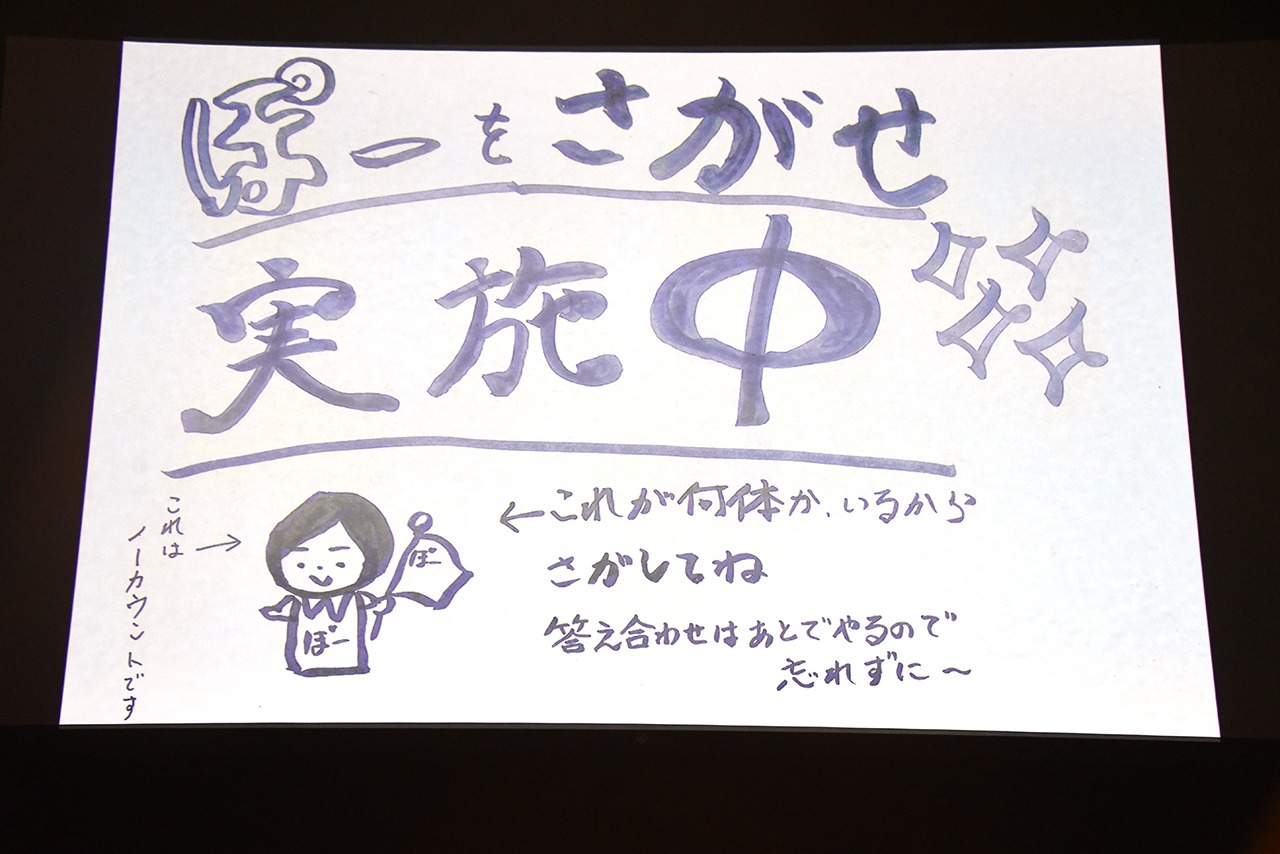 ぽーをさがせ
実施中
これは
ノーカウントです
ぽー
ぽー
←これが何体か、いるから
さがしてね
答え合わせはあとでやるので
忘れずに〜